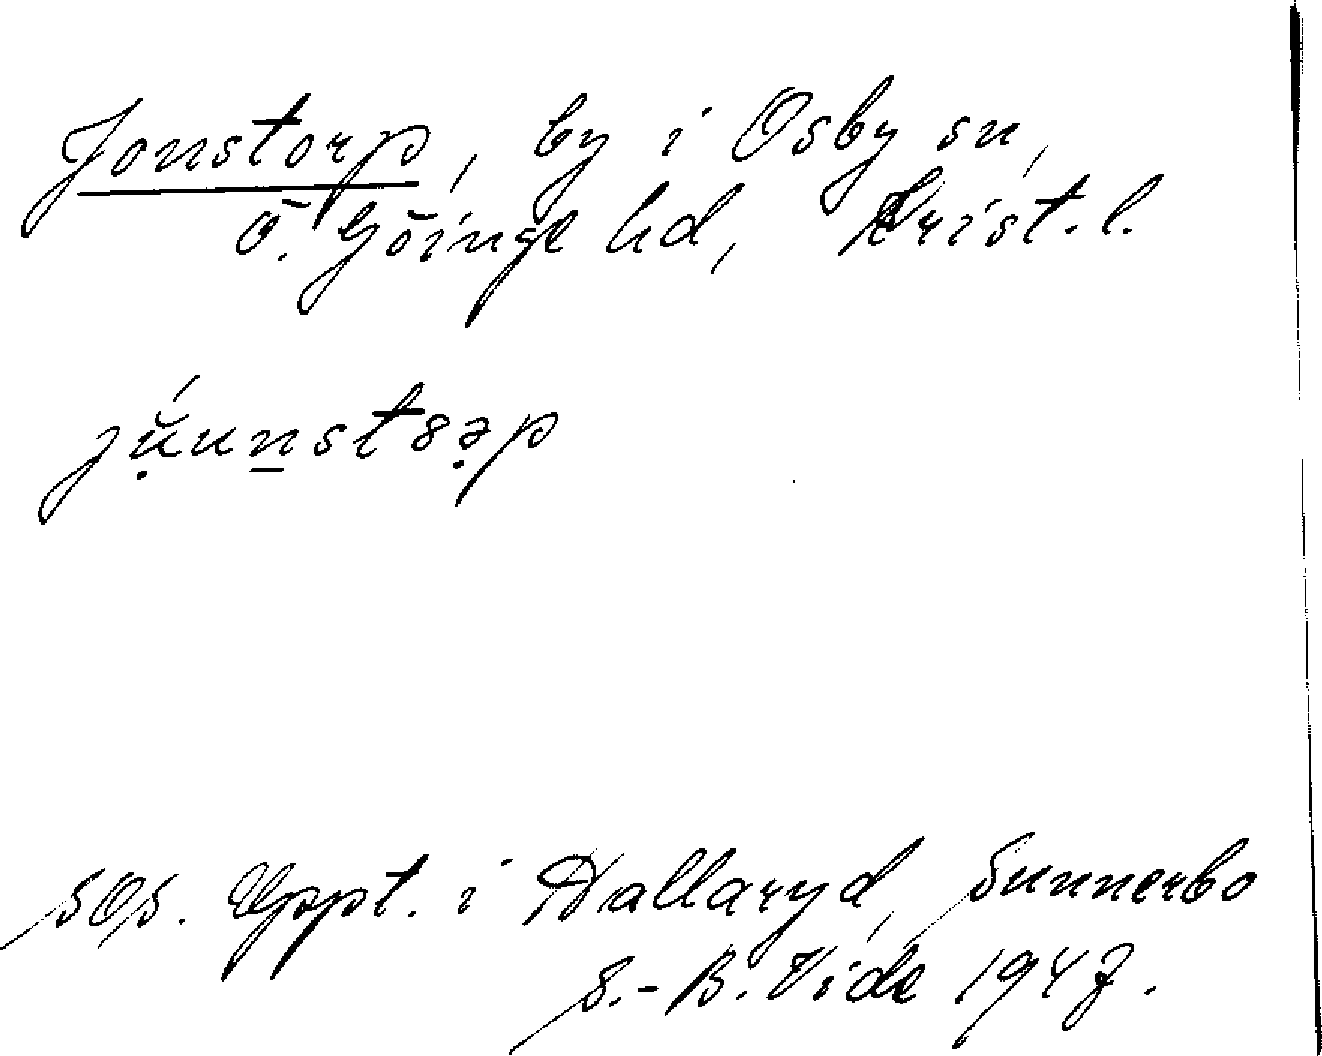 Jonstorp, by i Osby sn,
Ö. Göinge hd, Krist. l.
Uppt. i Hallaryd, Sunnerbo
S.-B. Vide 1947.